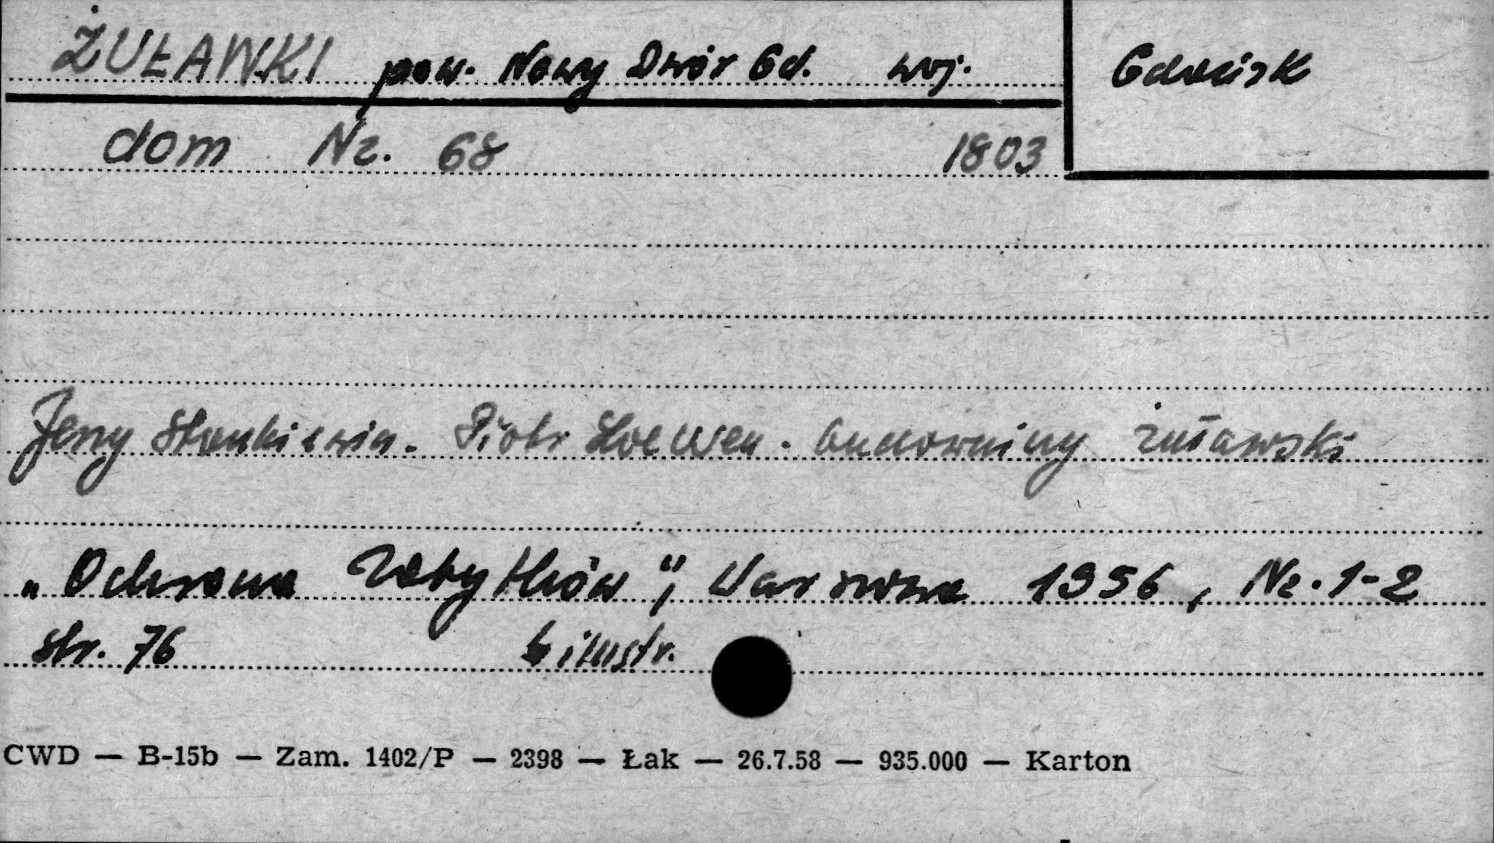 ŻUŁAWKI pow. Nowy Dwór Gd. woj. Gdańsk
dom Nr. 68 1803
Jerzy Stankiewicz. Piotr Loewen. budowniczy żuławski
„Ochrona Zabytków", Warszawa 1956, Nr. 1-2
str. 76 ilustr.
CWD — B-15b — Zam. 1402/P — 2398 — Łak — 26.7.58 — 935.000 — Karton